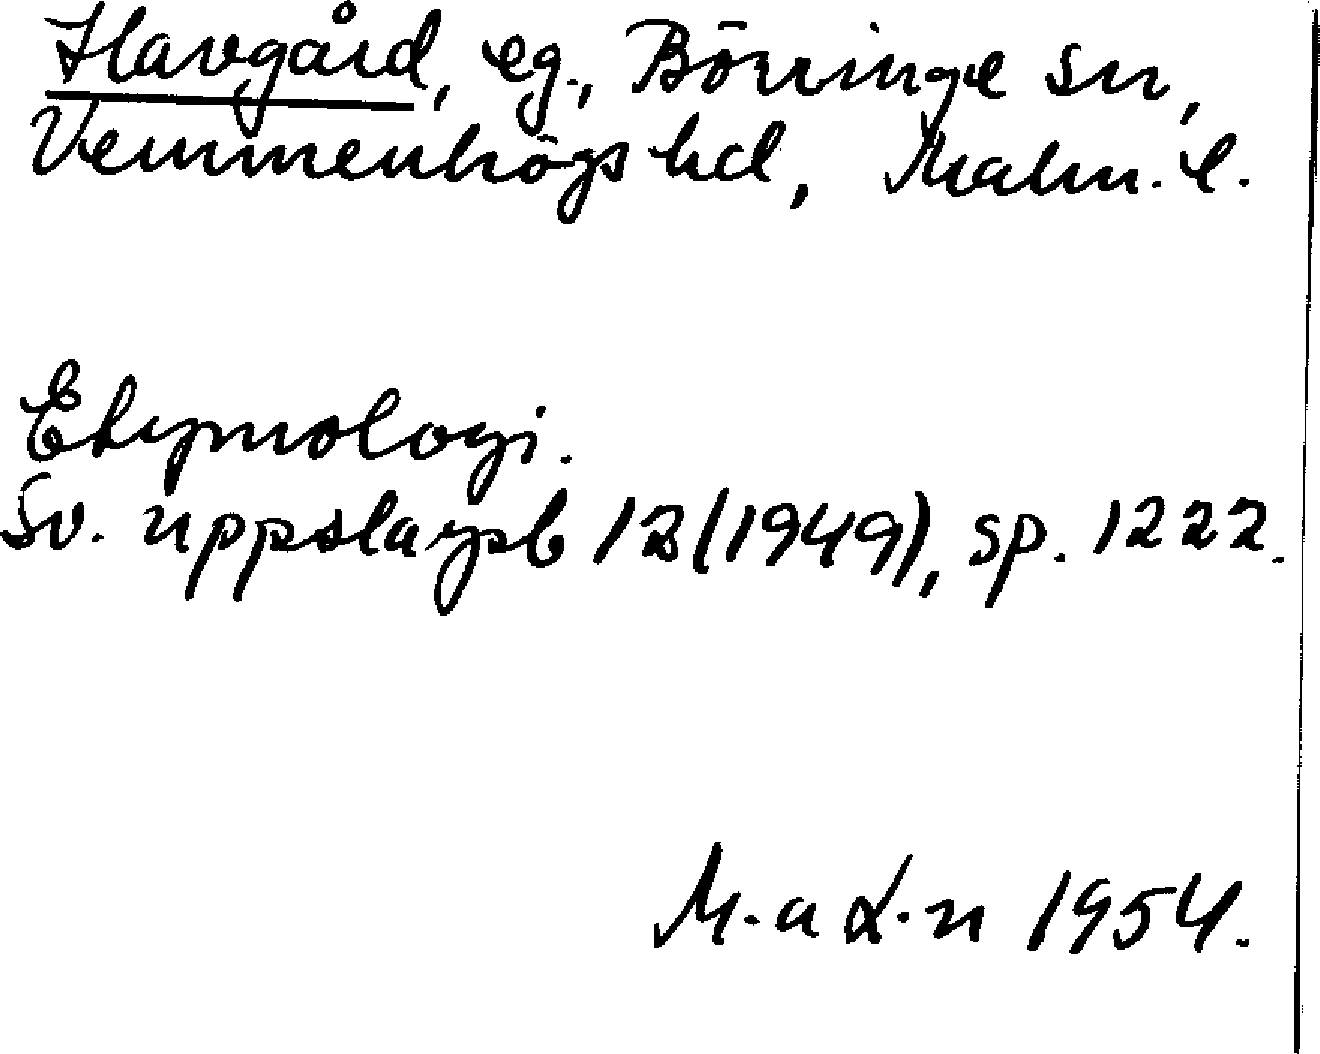 Havgård, eg., Börringe sn,
Vemmenhögs hd, Malm. l.
Etymologi.
Sv. uppslagsb 12(1949), sp. 1222.
M-a L-n 1954.